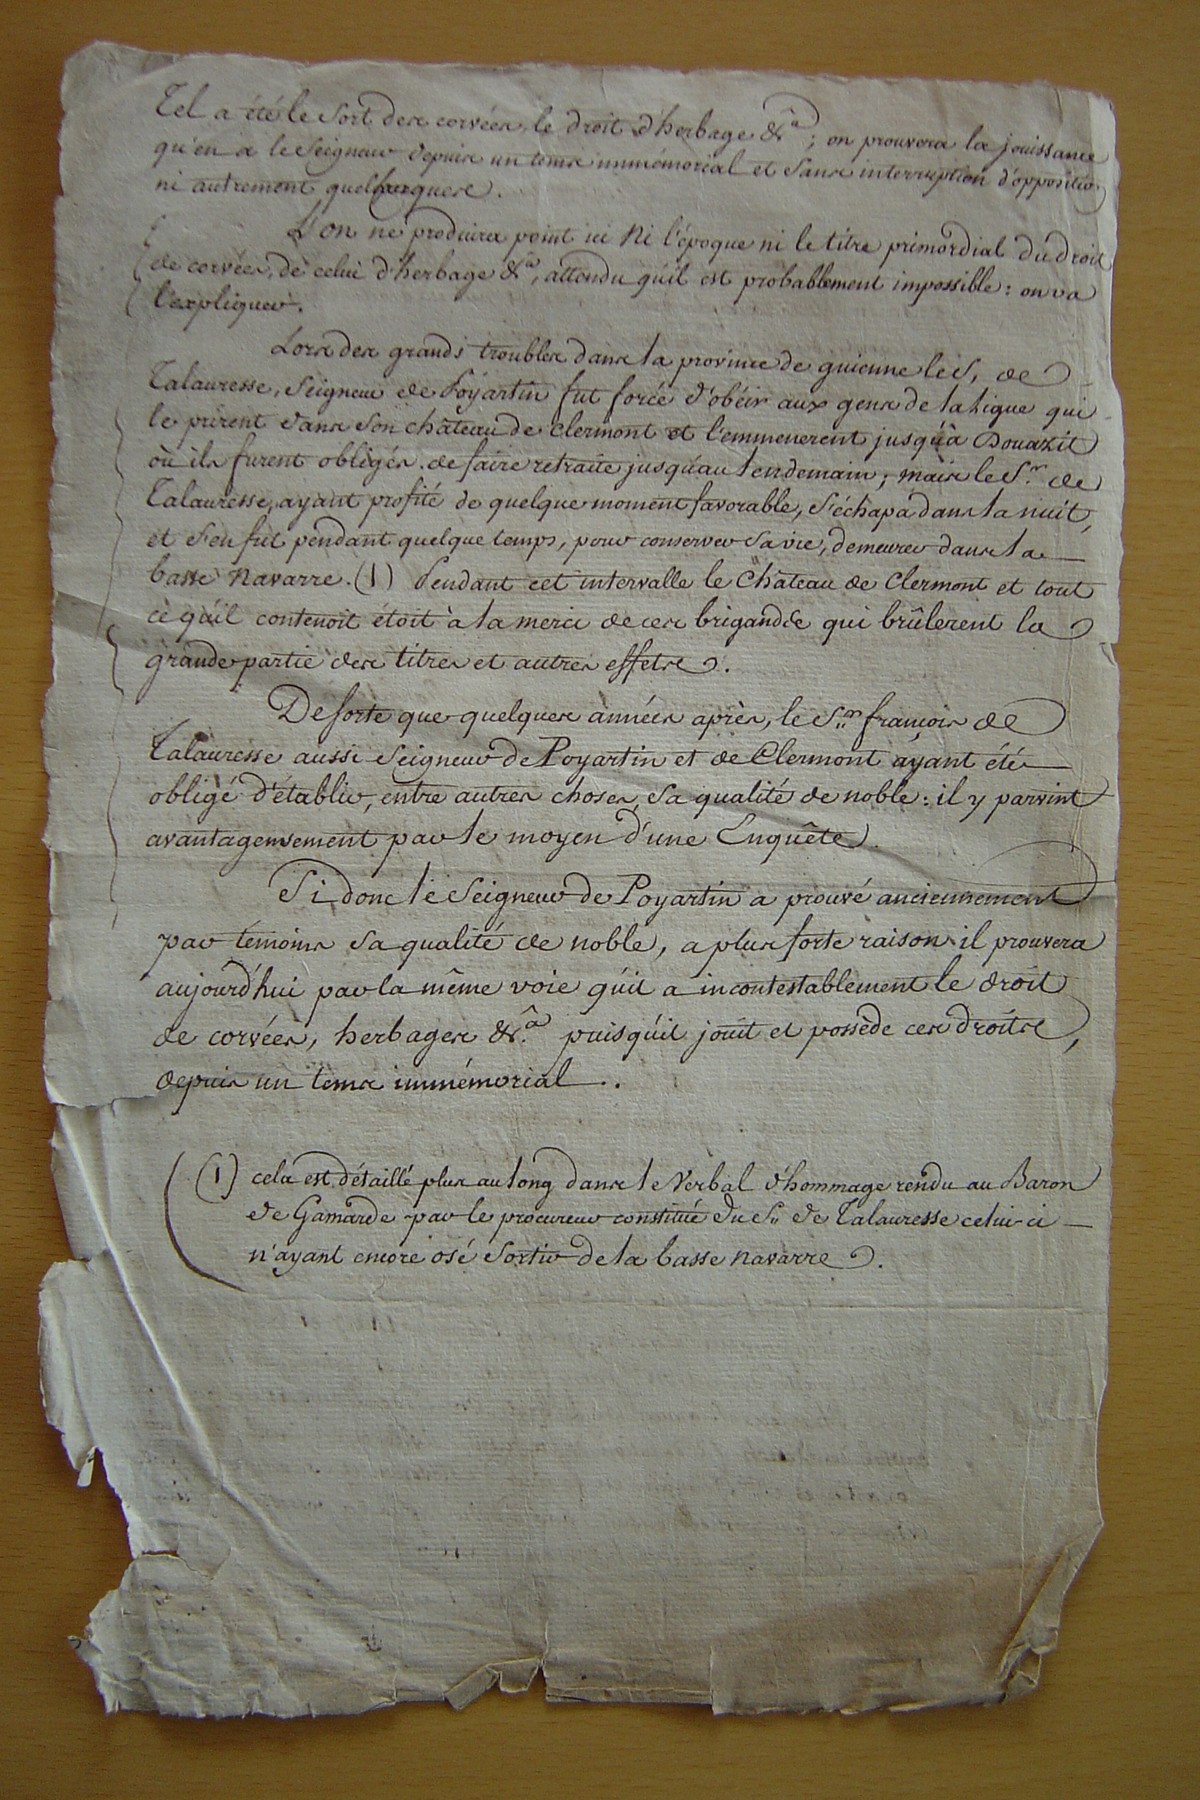 Tel a été le Sort des corvées, le droit d'herbage &a; on prouvera la jouissance
qu'en a le Seigneur depuis un tems immémorial et sans interruption d'oppositio
ni autrement quelconques.
L'on ne produira point ici Ni l'époque ni le titre primordial du droit
de corvées, de celui d'herbage &a, attendu qu'il est probablement impossible: on va
l'expliquer.
Lors des grands troubles dans la province de guienne le S, de
Talauresse, Seigneur de Poyartin fut forcé d'obéir aux gens de la Ligue qui
le prirent dans son château de Clermont et l'emmenerent jusqu'à Douazit
où ils furent obligés de faire retraite jusqu'au lendemain; mais le S.r de
Talauresse, ayant profité de quelque moment favorable, s'échapa dans la nuit,
et s'en fut pendant quelque temps, pour conserver sa vie, demeurer dans la
basse Navarre. (1) Pendant cet intervalle le Château de Clermont et tout
ce qu'il contenoit étoit à la merci de ces brigands qui brûlerent la
grande partie des titres et autres effets.
De sorte que quelques années après, le S.r françois de
Talauresse aussi Seigneur de Poyartin et de Clermont ayant été
obligé d'établir, entre autres choses, sa qualité de noble: il y parvint
avantageusement par le moyen d'une Enquête.
Si donc le Seigneur de Poyartin a prouvé anciennement
par temoins sa qualité de noble, a plus forte raison il prouvera
aujourd'hui par la même voie qu'il a incontestablement le droit
de corvées, herbages &.a puisqu'il jouit et possède ces droits,
depuis un tems immémorial..
(1) cela est détaillé plus au long dans le Verbal d'hommage rendu au Baron
de Gamarde par le procureur constitué du S.r de Talauresse celui-ci
n'ayant encore osé Sortir de la basse navarre.